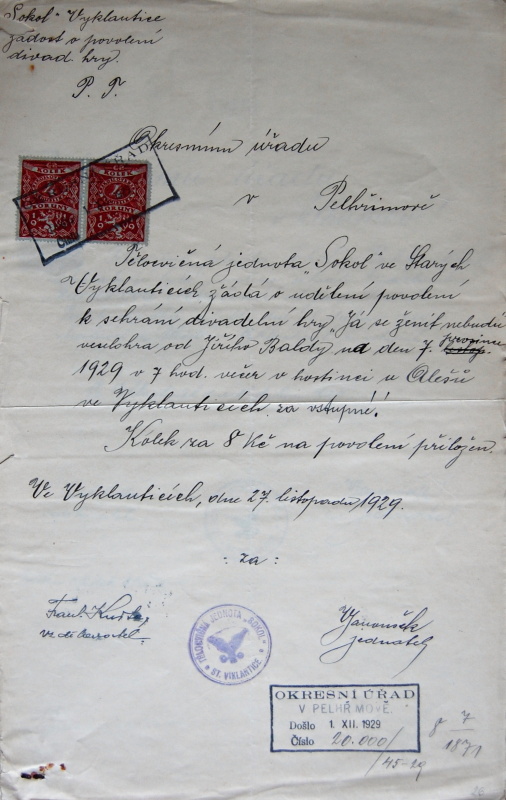 „Sokol“ Vyklantice
žádost o povolení
divad. hry.
P. T.
Okresnímu úřadu
v Pelhřimově
KOLEK
KORUNY
KOLEK
KORUNY
Tělocvičná jednota „Sokol“ ve Starých
Vyklanticích žádá o udělení povolení
k sehrání divadelní hry „Já se ženit nebudu
veselohra od Jiřího Baldy na den 7. prosince
1929 v 7 hod. večer v hostinci u Alešů
ve Vyklanticích za vstupné!
Kolek za 8 Kč na povolení přiložen.
Ve Vyklanticích, dne 27. listopadu 1929.
: za :
Frant.
jednatel
TĚLOCVIČNÁ JEDNOTA „SOKOL“
ST. VYKLANTICE
OKRESNÍ ÚŘAD
V PELHŘIMOVĚ.
Došlo 1. XII. 1929
Číslo 20.000/
/45-29
8 7/1871
26